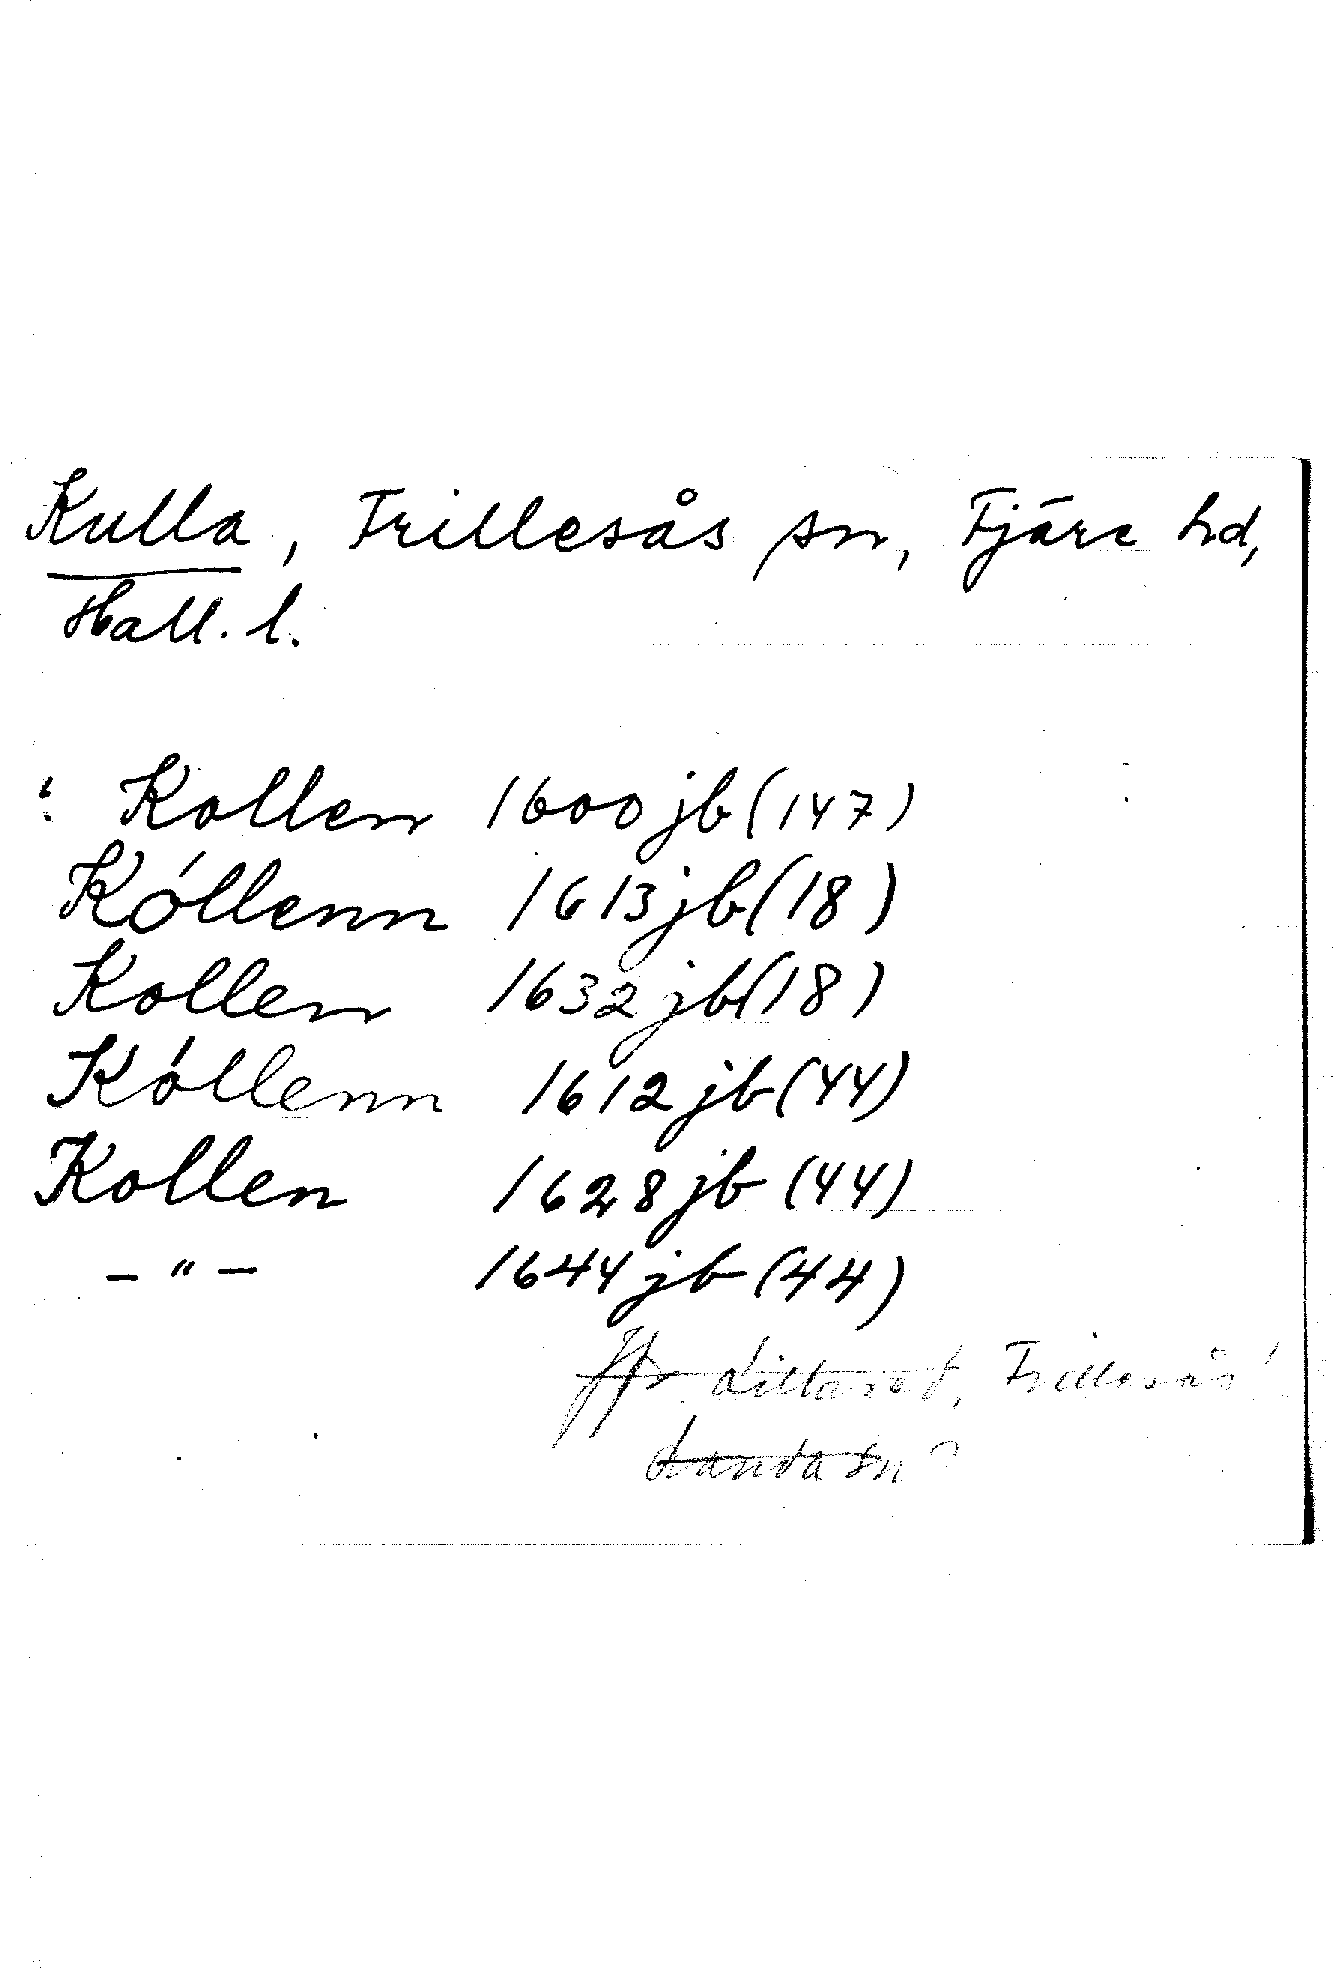 Kulla, Frillesås sn, Fjäre hd,
Hall. l.
: Kollen 1600 jb (147)
Kóllenn 1613 jb (18)
Kollen 1632 jb (18)
Kóllenn 1612 jb (44)
Kollen 1628 jb (44)
– " – 1644 jb (44)
Jfr Frillesås!
Landa sn ?